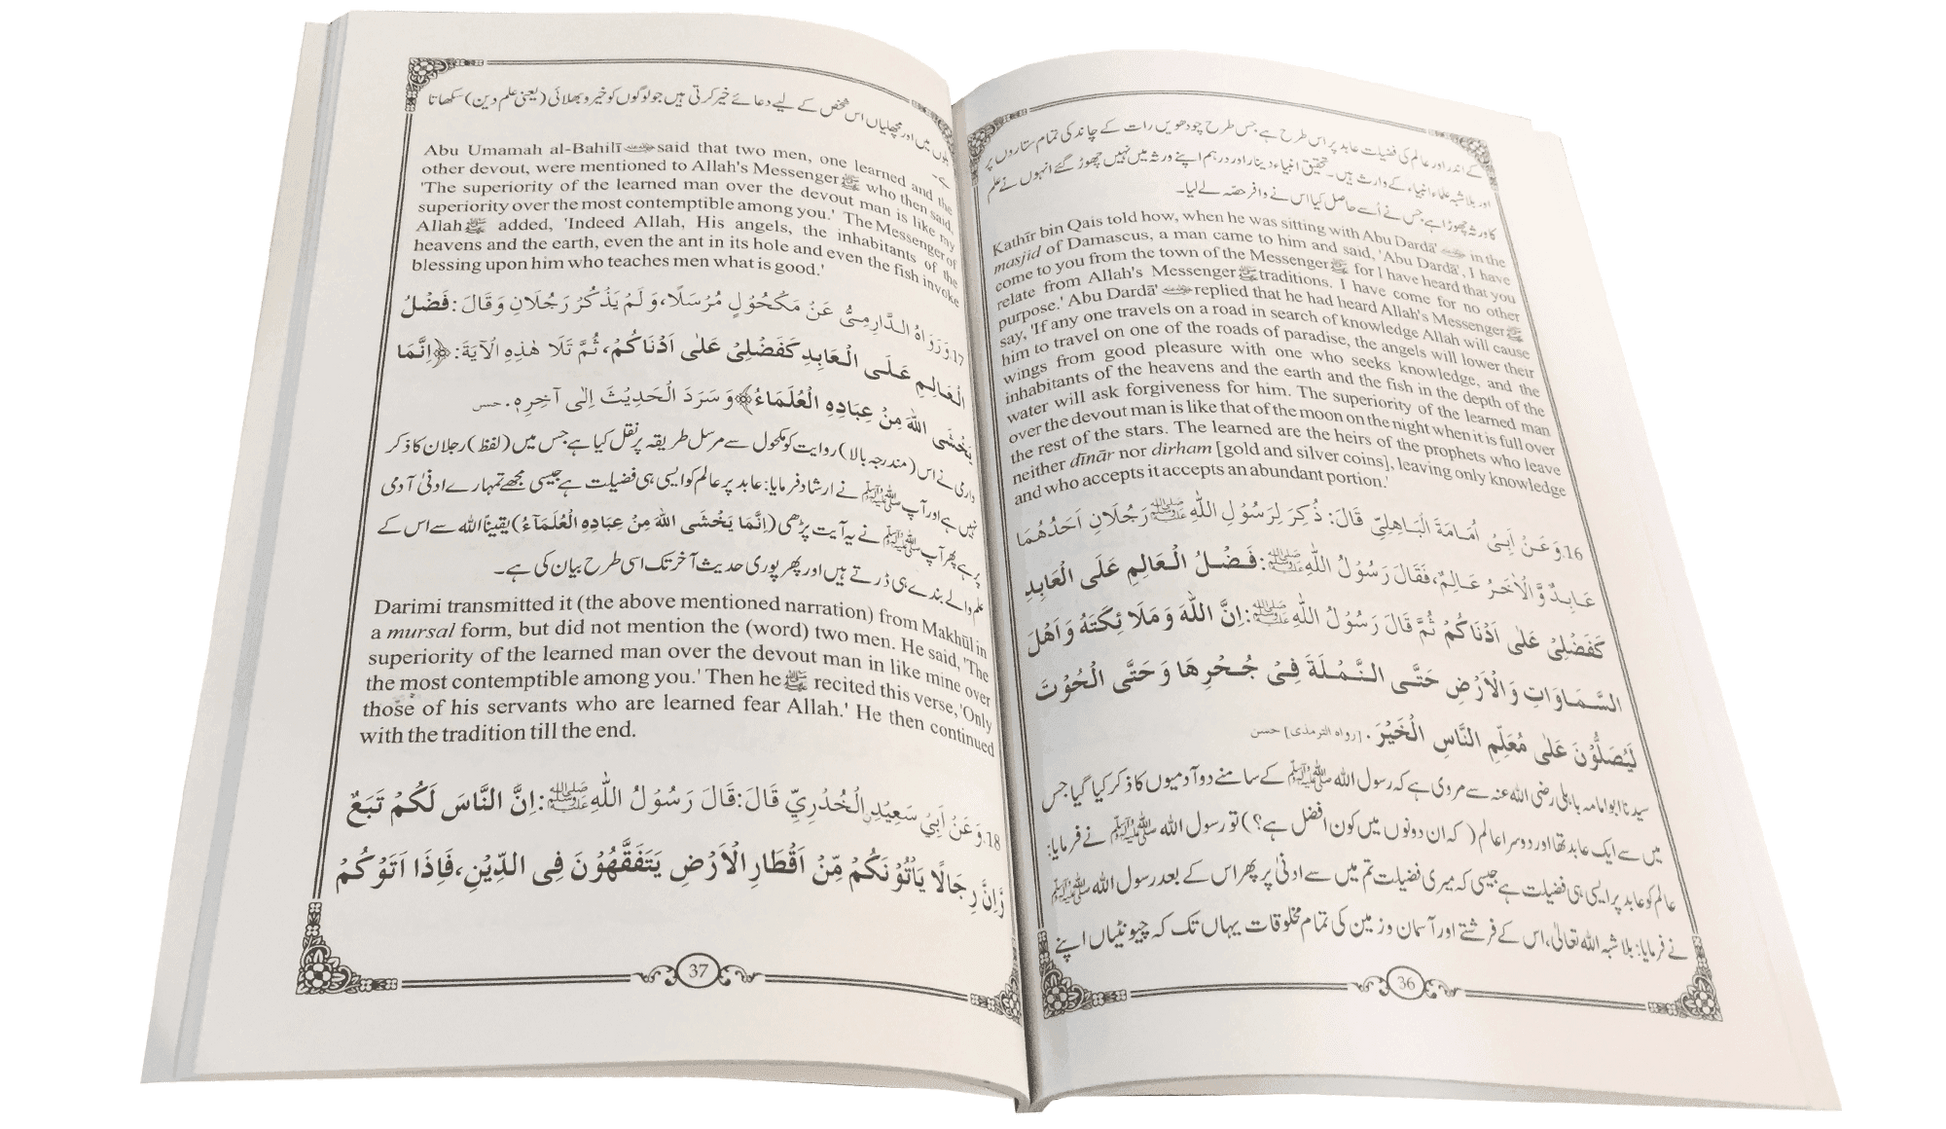 کے اندر اور عالم کی فضیلت عابد پر اس طرح ہے جس طرح چودھویں رات کے چاند کی تمام ستاروں پر
اور بلاشبہ علماء انبیاء کے وارث ہیں۔ تحقیق انبیاء دینار اور درہم اپنے ورثہ میں نہیں چھوڑ گئے انہوں نے علم
کا ورثہ چھوڑا ہے جس نے اُسے حاصل کیا اس نے وافر حصّہ لے لیا۔
Kathīr bin Qais told how, when he was sitting with Abu Dardā' in the
masjid of Damascus, a man came to him and said, 'Abu Dardā', I have
come to you from the town of the Messenger ﷺ for I have heard that you
relate from Allah's Messenger ﷺ traditions. I have come for no other
purpose.' Abu Dardā' replied that he had heard Allah's Messenger ﷺ
say, 'If any one travels on a road in search of knowledge Allah will cause
him to travel on one of the roads of paradise, the angels will lower their
wings from good pleasure with one who seeks knowledge, and the
inhabitants of the heavens and the earth and the fish in the depth of the
water will ask forgiveness for him. The superiority of the learned man
over the devout man is like that of the moon on the night when it is full over
the rest of the stars. The learned are the heirs of the prophets who leave
neither dīnār nor dirham [gold and silver coins], leaving only knowledge
and who accepts it accepts an abundant portion.'
16. وَعَنْ اَبِیْ اُمَامَةَ الْبَاهِلِيِّ قَالَ: ذُكِرَ لِرَسُوْلِ اللّٰهِ ﷺ رَجُلَانِ اَحَدُهُمَا
عَابِدٌ وَّالْاٰخَرُ عَالِمٌ، فَقَالَ رَسُوْلُ اللّٰهِ ﷺ: فَضْلُ الْعَالِمِ عَلَى الْعَابِدِ
كَفَضْلِیْ عَلٰی اَدْنَاكُمْ ثُمَّ قَالَ رَسُوْلُ اللّٰهِ ﷺ: اِنَّ اللّٰهَ وَمَلَائِكَتَهُ وَاَهْلَ
السَّمَاوَاتِ وَالْاَرْضِ حَتَّی النَّمْلَةَ فِیْ جُحْرِهَا وَحَتَّی الْحُوْتَ
لَيُصَلُّوْنَ عَلٰی مُعَلِّمِ النَّاسِ الْخَيْرَ. [رواه الترمذی] حسن
سیدنا ابوامامہ باہلی رضی اللہ عنہ سے مروی ہے کہ رسول اللہ ﷺ کے سامنے دو آدمیوں کا ذکر کیا گیا جس
میں سے ایک عابد تھا اور دوسرا عالم (کہ ان دونوں میں کون افضل ہے؟) تو رسول اللہ ﷺ نے فرمایا:
عالم کو عابد پر ایسی ہی فضیلت ہے جیسی کہ میری فضیلت تم میں سے ادنیٰ پر پھر اس کے بعد رسول اللہ ﷺ
نے فرمایا: بلاشبہ اللہ تعالیٰ، اس کے فرشتے اور آسمان و زمین کی تمام مخلوقات یہاں تک کہ چیونٹیاں اپنے
36
بلوں میں اور مچھلیاں اس شخص کے لیے دعائے خیر کرتی ہیں جو لوگوں کو خیر و بھلائی (یعنی علم دین) سکھاتا
ہے۔
Abu Umamah al-Bahilī said that two men, one learned and the
other devout, were mentioned to Allah's Messenger ﷺ who then said,
'The superiority of the learned man over the devout man is like my
superiority over the most contemptible among you.' The Messenger of
Allah ﷺ added, 'Indeed Allah, His angels, the inhabitants of the
heavens and the earth, even the ant in its hole and even the fish invoke
blessing upon him who teaches men what is good.'
17. وَرَوَاهُ الدَّارِمِیُّ عَنْ مَكْحُوْلٍ مُرْسَلًا، وَلَمْ يَذْكُرْ رَجُلَانِ وَقَالَ: فَضْلُ
الْعَالِمِ عَلَی الْعَابِدِ كَفَضْلِیْ عَلٰی اَدْنَاكُمْ، ثُمَّ تَلَا هٰذِهِ الْاٰيَةَ: ﴿اِنَّمَا
يَخْشَی اللّٰهَ مِنْ عِبَادِهِ الْعُلَمَاءُ﴾ وَسَرَدَ الْحَدِيْثَ اِلٰی آخِرِهٖ. حسن
دارمی نے اس (مندرجہ بالا) روایت کو مکحول سے مرسل طریقہ پر نقل کیا ہے جس میں (لفظ) رجلان کا ذکر
نہیں ہے اور آپ ﷺ نے ارشاد فرمایا: عابد پر عالم کو ایسی ہی فضیلت ہے جیسی مجھے تمہارے ادنیٰ آدمی
پر ہے پھر آپ ﷺ نے یہ آیت پڑھی (اِنَّمَا يَخْشَی اللّٰهَ مِنْ عِبَادِهِ الْعُلَمَآءُ) یقیناً اللہ سے اس کے
علم والے بندے ہی ڈرتے ہیں اور پھر پوری حدیث آخر تک اسی طرح بیان کی ہے۔
Darimi transmitted it (the above mentioned narration) from Makhūl in
a mursal form, but did not mention the (word) two men. He said, 'The
superiority of the learned man over the devout man in like mine over
the most contemptible among you.' Then he ﷺ recited this verse, 'Only
those of his servants who are learned fear Allah.' He then continued
with the tradition till the end.
18. وَعَنْ اَبِيْ سَعِيْدِنِ الْخُدْرِيِّ قَالَ: قَالَ رَسُوْلُ اللّٰهِ ﷺ: اِنَّ النَّاسَ لَكُمْ تَبَعٌ
وَّاِنَّ رِجَالًا يَاْتُوْنَكُمْ مِّنْ اَقْطَارِ الْاَرْضِ يَتَفَقَّهُوْنَ فِی الدِّيْنِ، فَاِذَا اَتَوْكُمْ
37